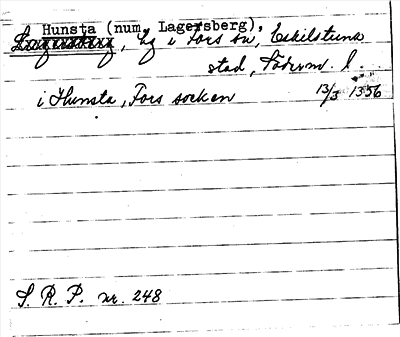 Hunsta (num. Lagersberg),
Lagersberg, Lg i Fors sn, Eskilstuna
stad, Söderm. l.
i Hunsta, Fors socken 13/3 1356
S. R. P. nr. 248